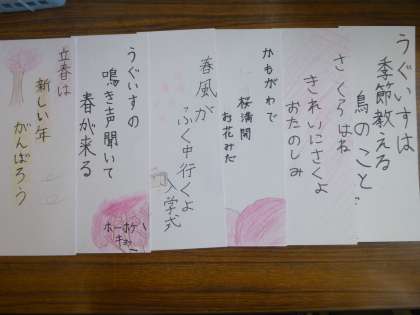 うぐいすは
季節教える
鳥のこと
さくらはね
きれいにさくよ
おたのしみ
かもがわで
桜満開
お花みだ
春風が
ふく中行くよ
入学式
うぐいすの
鳴き声聞いて
春が来る
ホーホケ
キョ
立春は
新しい年
がんばろう